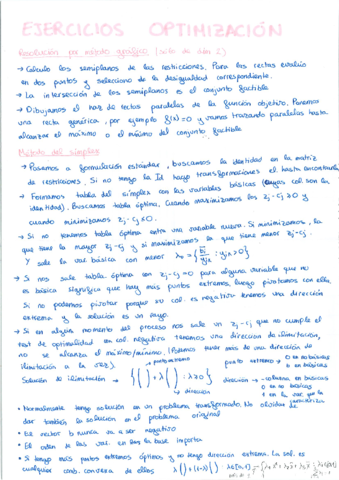 EJERCICIOS OPTIMIZACIÓN
Resolución por método gráfico (sólo de dim 2)
→ Calculo los semiplanos de las restricciones. Para las rectas evalúo
en dos puntos y selecciono de la desigualdad correspondiente.
→ La intersección de los semiplanos es el conjunto factible
→ Dibujamos el haz de rectas paralelas de la función objetivo. Ponemos
una recta genérica, por ejemplo f(x)=0 y vamos trazando paralelas hasta
alcanzar el máximo o el mínimo del conjunto factible
Método del simplex
→ Pasamos a formulación estándar, buscamos la identidad en la matriz
de restricciones. Si no tengo la Id hago transformaciones el hasta encontrarla
→ Formamos tabla del simplex con las variables básicas (cuyas col. son la
identidad). Buscamos tabla óptima. Cuando maximizamos los zj-cj ≥0 y
cuando minimizamos zj-cj ≤0.
→ Si no tenemos tabla óptima entra una variable nueva. Si minimizamos, la
que tiene la mayor zj-cj y si maximizamos la que tiene menor zj-cj.
Y sale la var básica con menor
→ Si nos sale tabla óptima con zj-cj=0 para alguna variable que no
es básica significa que hay más puntos extremos, luego pivotamos con ella.
Si no podemos pivotar porque su col. es negativa tenemos una dirección
extrema y la solución es un rayo.
→ Si en algún momento del proceso nos sale un zj-cj que no cumple el
test de optimalidad en col. negativa tenemos una dirección de ilimitación,
no se alcanza el máximo/mínimo. (Podemos tener más de una dirección de
ilimitación a la vez).
punto extremo
Solución de ilimitación → { ( ) + λ ( ) : λ≥0 }
dirección
punto extremo
0 en no básicas
b en básicas
dirección → columna en básicas
0 en no básicas
1 en la var. que la
• Normalmente tengo solución en un problema transformado. No olvidar
dar también la solución en el problema original
• El vector b nunca va a ser negativo
• El orden de las var. en la base importa
• Si tengo más puntos extremos óptimos y no tengo dirección extrema. La sol. es
cualquier comb. convexa de ellos λ( )+(1-λ)( ) λ∈[0,1]